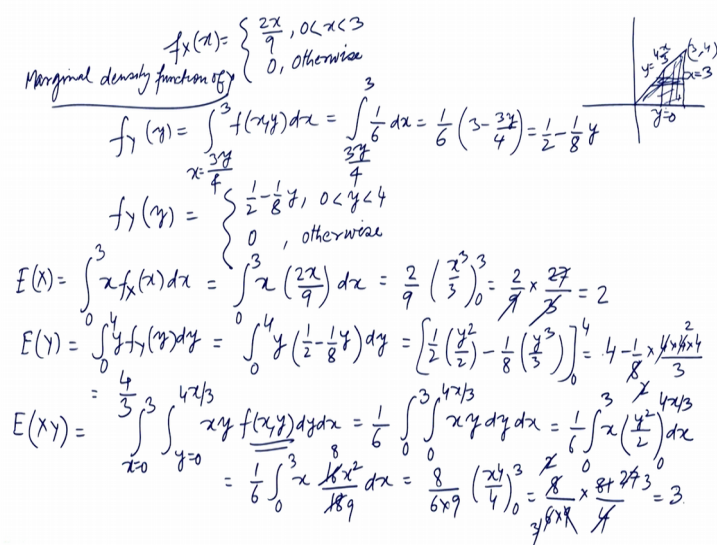 f_X(x) = { 2x/9 , 0<x<3
0, otherwise
Marginal density function of y
y=4x/3 (3,4) x=3 y=0
f_Y(y) = ∫_{x=3y/4}^{3} f(x,y)dx = ∫_{3y/4}^{3} 1/6 dx = 1/6 (3 - 3y/4) = 1/2 - 1/8 y
f_Y(y) = { 1/2 - 1/8 y, 0<y<4
0 , otherwise
E(X) = ∫_0^3 x f_X(x) dx = ∫_0^3 x (2x/9) dx = 2/9 (x^3/3)_0^3 = 2/9 × 27/3 = 2
E(Y) = ∫_0^4 y f_Y(y) dy = ∫_0^4 y (1/2 - 1/8 y) dy = [1/2 (y^2/2) - 1/8 (y^3/3)]_0^4 = 4 - 1/8 × 4×4×4/3
= 4/3
E(XY) = ∫_{x=0}^{3} ∫_{y=0}^{4x/3} xy f(x,y) dy dx = 1/6 ∫_0^3 ∫_0^{4x/3} xy dy dx = 1/6 ∫_0^3 x (y^2/2)_0^{4x/3} dx
= 1/6 ∫_0^3 x 16x^2/18 dx = 8/(6×9) (x^4/4)_0^3 = 8/(6×9) × 81/4 = 3.